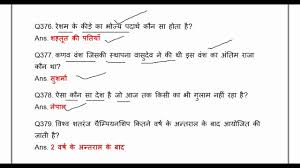 Q376. रेशम के कीड़े का भोज्य पदार्थ कौन सा होता है?
Ans. शहतूत की पत्तियाँ
Q377. कणव वंश जिसकी स्थापना वासुदेव ने की थी इस वंश का अंतिम राजा
कौन था?
Ans. सुशर्मा
Q378. ऐसा कौन सा देश है जो आज तक किसी का भी गुलाम नहीं रहा है?
Ans. नेपाल
Q379. विश्व शतरंज चैम्पियनशिप कितने वर्ष के अन्तराल के बाद आयोजित
की जाती है?
Ans. 2 वर्ष के अन्तराल के बाद